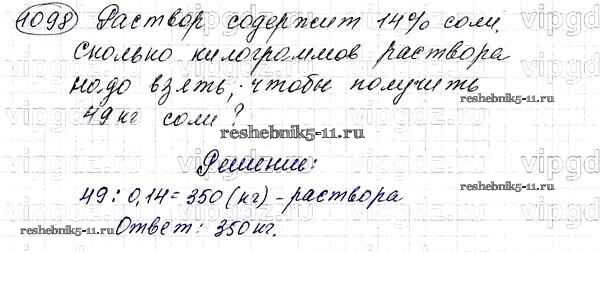 1098 Раствор содержит 14% соли.
Сколько килограммов раствора
надо взять, чтобы получить
reshebnik5-11.ru
49 кг соли?
reshebnik5-11.ru
Решение:
49 : 0,14 = 350 (кг) - раствора
reshebnik5-11.ru
Ответ: 350 кг.
reshebnik5-11.ru